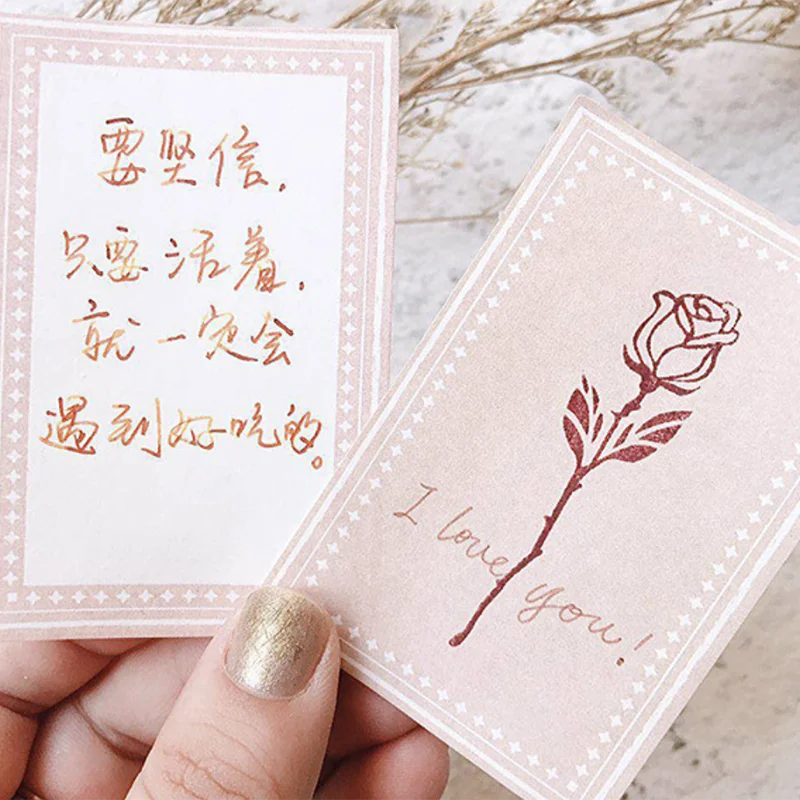 要坚信，
只要活着，
就一定会
遇到好吃的。
I love you!